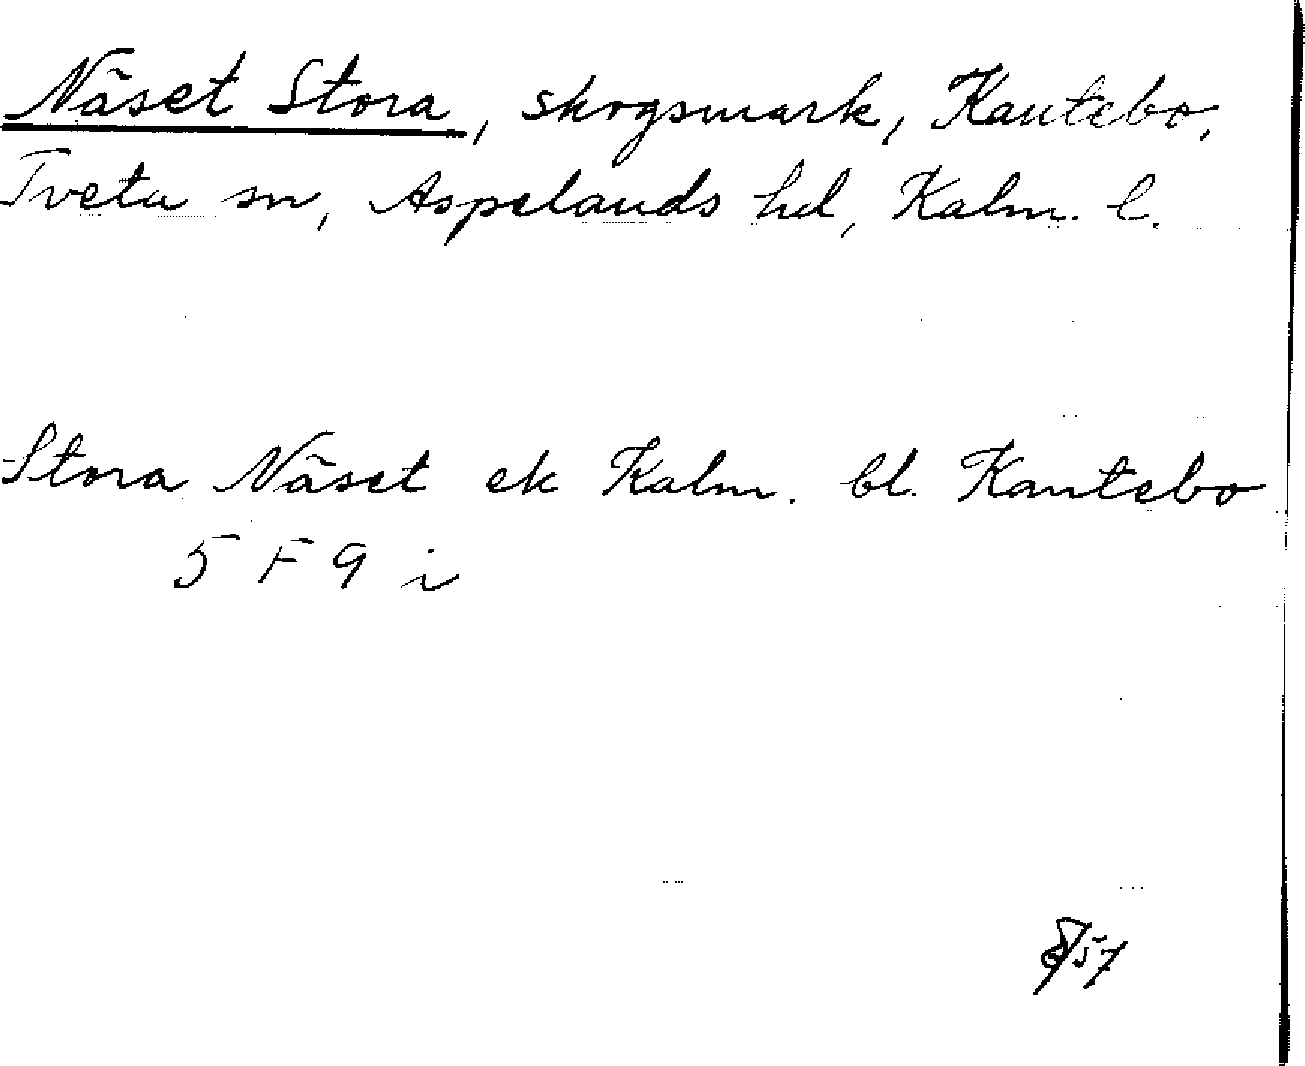 Näset Stora, skogsmark, Kantebo,
Tveta sn, Aspelands hd, Kalm. l.
Stora Näset ek Kalm. bl. Kantebo
5 F 9 i
8/57